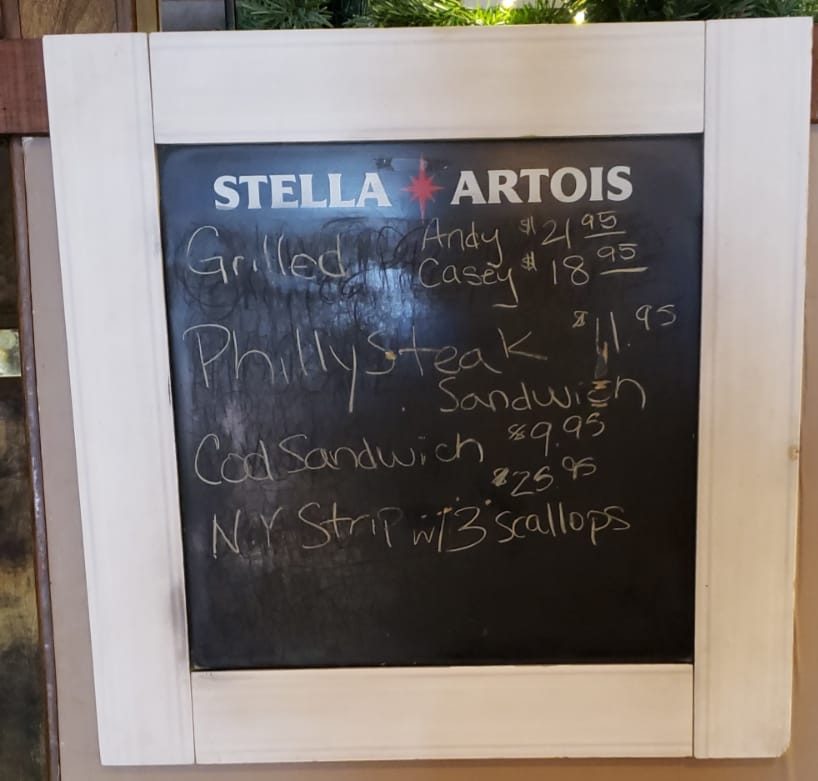 STELLA ARTOIS
Grilled Andy $21.95
Casey $18.95
Philly Steak $11.95
Sandwich
Cod Sandwich $9.95
$25.95
N.Y Strip w/3 scallops